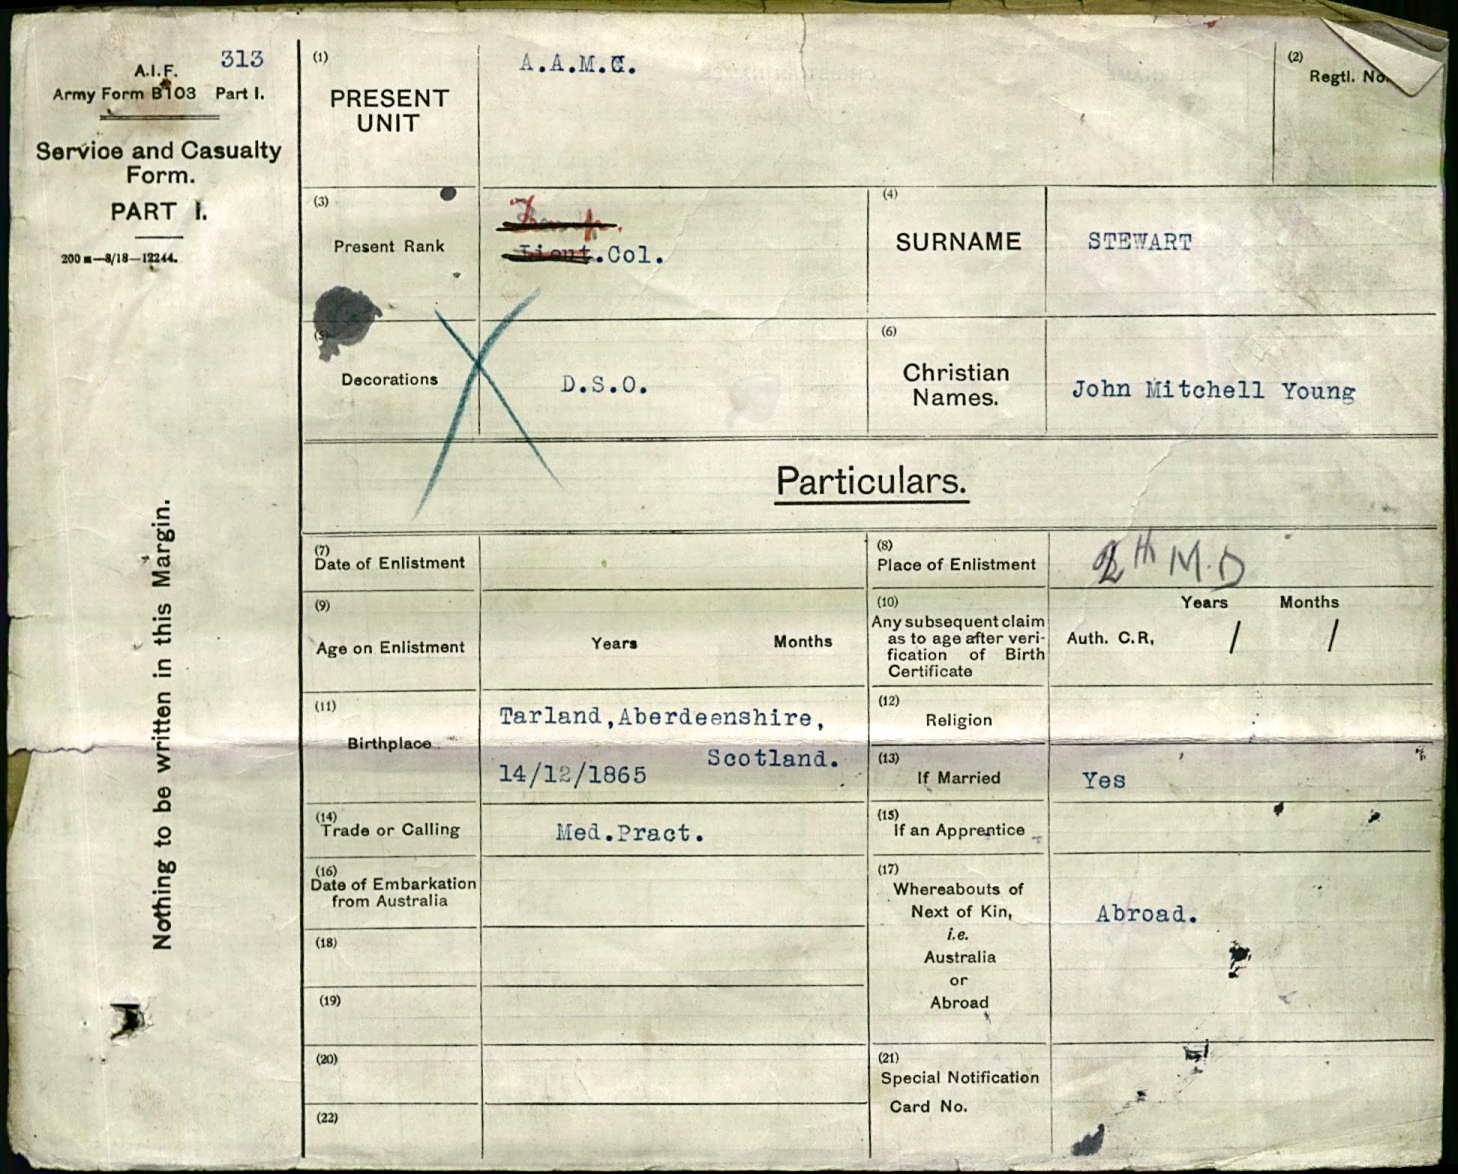 313
A.I.F.
Army Form B103 Part I.
Service and Casualty
Form.
PART I.
200 m—8/18—12244.
Nothing to be written in this Margin.
(1)
PRESENT
UNIT
A.A.M.C.
(2)
Regtl. No.
(3)
Present Rank
Temp.
Lieut.Col.
(4)
SURNAME
STEWART
(5)
Decorations
D.S.O.
(6)
Christian
Names.
John Mitchell Young
Particulars.
(7)
Date of Enlistment
(8)
Place of Enlistment
M.D
(9)
Age on Enlistment
Years Months
(10)
Any subsequent claim
as to age after veri-
fication of Birth
Certificate
Years Months
Auth. C.R, / /
(11)
Birthplace
Tarland,Aberdeenshire,
Scotland.
14/12/1865
(12)
Religion
(13)
If Married
Yes
(14)
Trade or Calling
Med.Pract.
(15)
If an Apprentice
(16)
Date of Embarkation
from Australia
(17)
Whereabouts of
Next of Kin,
i.e.
Australia
or
Abroad
Abroad.
(18)
(19)
(20)
(21)
Special Notification
Card No.
(22)